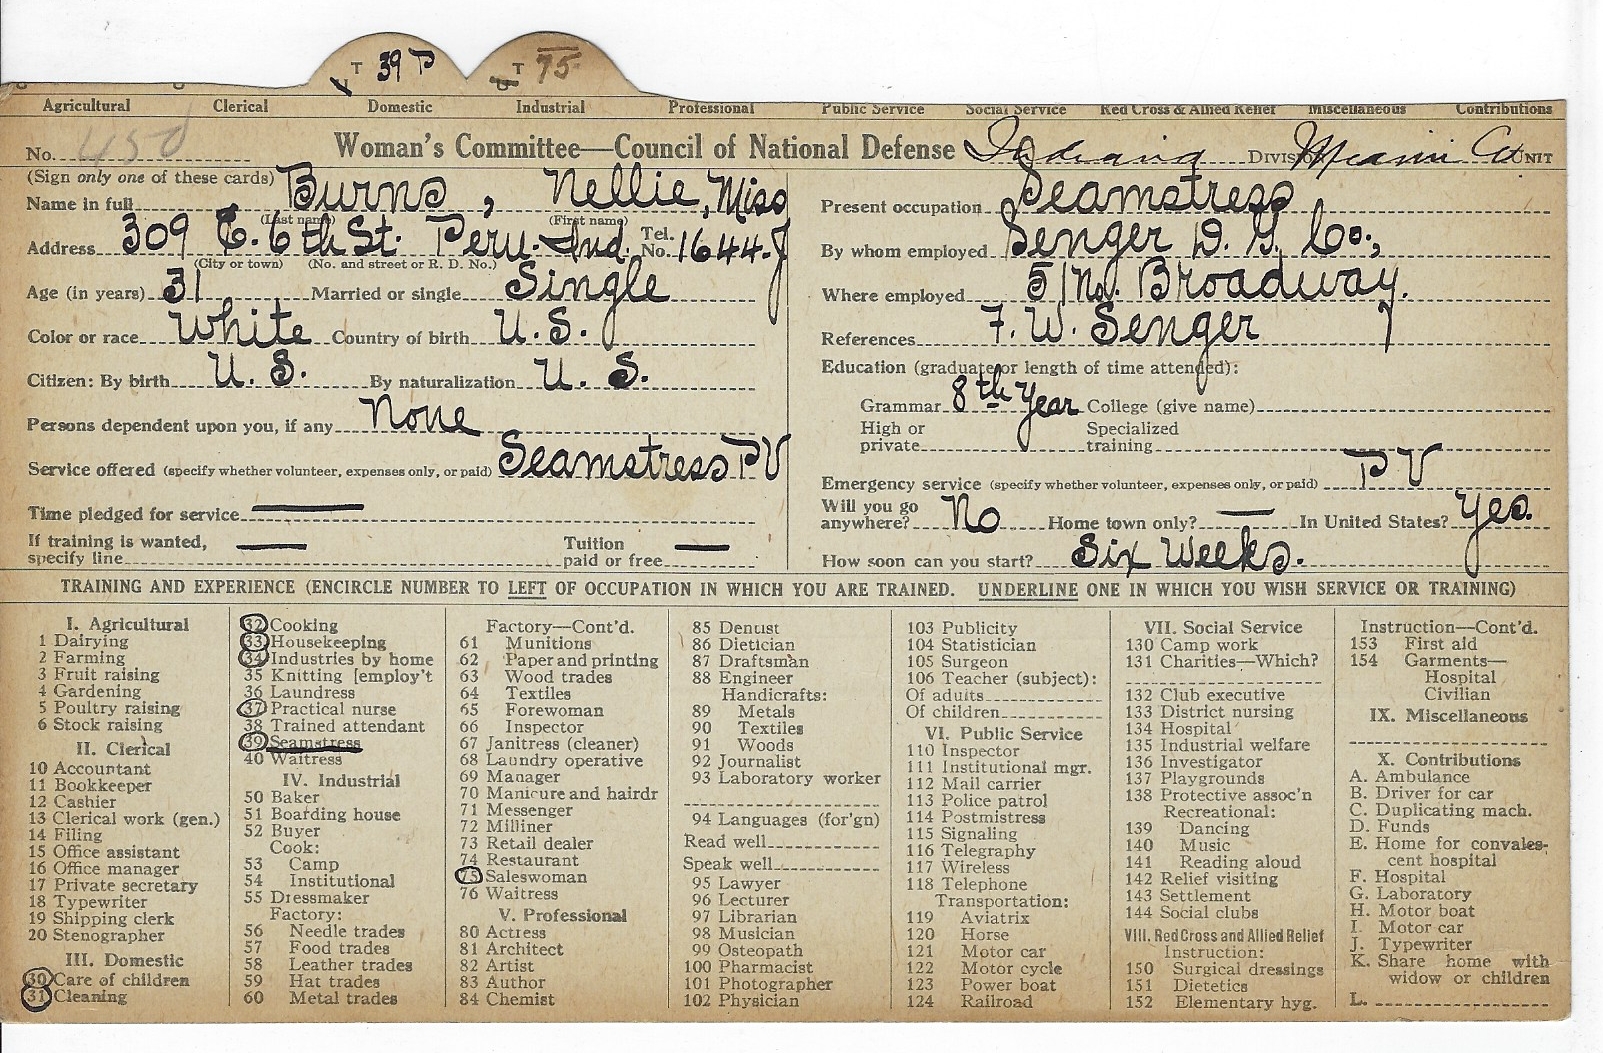 T 39 P T 75
Agricultural Clerical Domestic Industrial Professional Public Service Social Service Red Cross & Allied Relief Miscellaneous Contributions
No. 450 Woman's Committee—Council of National Defense Indiana DIVISION Miami Co UNIT
(Sign only one of these cards)
Name in full Burns, Nellie, Miss
(Last name) (First name)
Address 309 E. 6th St. Peru. Ind. Tel. No. 1644-J
(City or town) (No. and street or R. D. No.)
Age (in years) 31 Married or single Single
Color or race White Country of birth U.S.
Citizen: By birth U. S. By naturalization U. S.
Persons dependent upon you, if any None
Service offered (specify whether volunteer, expenses only, or paid) Seamstress PV
Time pledged for service
If training is wanted, specify line Tuition paid or free
Present occupation Seamstress
By whom employed Senger D. G. Co.,
Where employed 51 No. Broadway.
References F. W. Senger
Education (graduate or length of time attended):
Grammar 8th Year College (give name)
High or private Specialized training
Emergency service (specify whether volunteer, expenses only, or paid) P V
Will you go anywhere? No Home town only? — In United States? Yes.
How soon can you start? Six Weeks.
TRAINING AND EXPERIENCE (ENCIRCLE NUMBER TO LEFT OF OCCUPATION IN WHICH YOU ARE TRAINED. UNDERLINE ONE IN WHICH YOU WISH SERVICE OR TRAINING)
I. Agricultural
1 Dairying
2 Farming
3 Fruit raising
4 Gardening
5 Poultry raising
6 Stock raising
II. Clerical
10 Accountant
11 Bookkeeper
12 Cashier
13 Clerical work (gen.)
14 Filing
15 Office assistant
16 Office manager
17 Private secretary
18 Typewriter
19 Shipping clerk
20 Stenographer
III. Domestic
30 Care of children
31 Cleaning
32 Cooking
33 Housekeeping
34 Industries by home
35 Knitting [employ't
36 Laundress
37 Practical nurse
38 Trained attendant
39 Seamstress
40 Waitress
IV. Industrial
50 Baker
51 Boarding house
52 Buyer
Cook:
53 Camp
54 Institutional
55 Dressmaker
Factory:
56 Needle trades
57 Food trades
58 Leather trades
59 Hat trades
60 Metal trades
Factory—Cont'd.
61 Munitions
62 Paper and printing
63 Wood trades
64 Textiles
65 Forewoman
66 Inspector
67 Janitress (cleaner)
68 Laundry operative
69 Manager
70 Manicure and hairdr
71 Messenger
72 Milliner
73 Retail dealer
74 Restaurant
75 Saleswoman
76 Waitress
V. Professional
80 Actress
81 Architect
82 Artist
83 Author
84 Chemist
85 Dentist
86 Dietician
87 Draftsman
88 Engineer
Handicrafts:
89 Metals
90 Textiles
91 Woods
92 Journalist
93 Laboratory worker
94 Languages (for'gn)
Read well
Speak well
95 Lawyer
96 Lecturer
97 Librarian
98 Musician
99 Osteopath
100 Pharmacist
101 Photographer
102 Physician
103 Publicity
104 Statistician
105 Surgeon
106 Teacher (subject):
Of adults
Of children
VI. Public Service
110 Inspector
111 Institutional mgr.
112 Mail carrier
113 Police patrol
114 Postmistress
115 Signaling
116 Telegraphy
117 Wireless
118 Telephone
Transportation:
119 Aviatrix
120 Horse
121 Motor car
122 Motor cycle
123 Power boat
124 Railroad
VII. Social Service
130 Camp work
131 Charities—Which?
132 Club executive
133 District nursing
134 Hospital
135 Industrial welfare
136 Investigator
137 Playgrounds
138 Protective assoc'n
Recreational:
139 Dancing
140 Music
141 Reading aloud
142 Relief visiting
143 Settlement
144 Social clubs
VIII. Red Cross and Allied Relief
Instruction:
150 Surgical dressings
151 Dietetics
152 Elementary hyg.
Instruction—Cont'd.
153 First aid
154 Garments—
Hospital
Civilian
IX. Miscellaneous
X. Contributions
A. Ambulance
B. Driver for car
C. Duplicating mach.
D. Funds
E. Home for convales-
cent hospital
F. Hospital
G. Laboratory
H. Motor boat
I. Motor car
J. Typewriter
K. Share home with
widow or children
L.